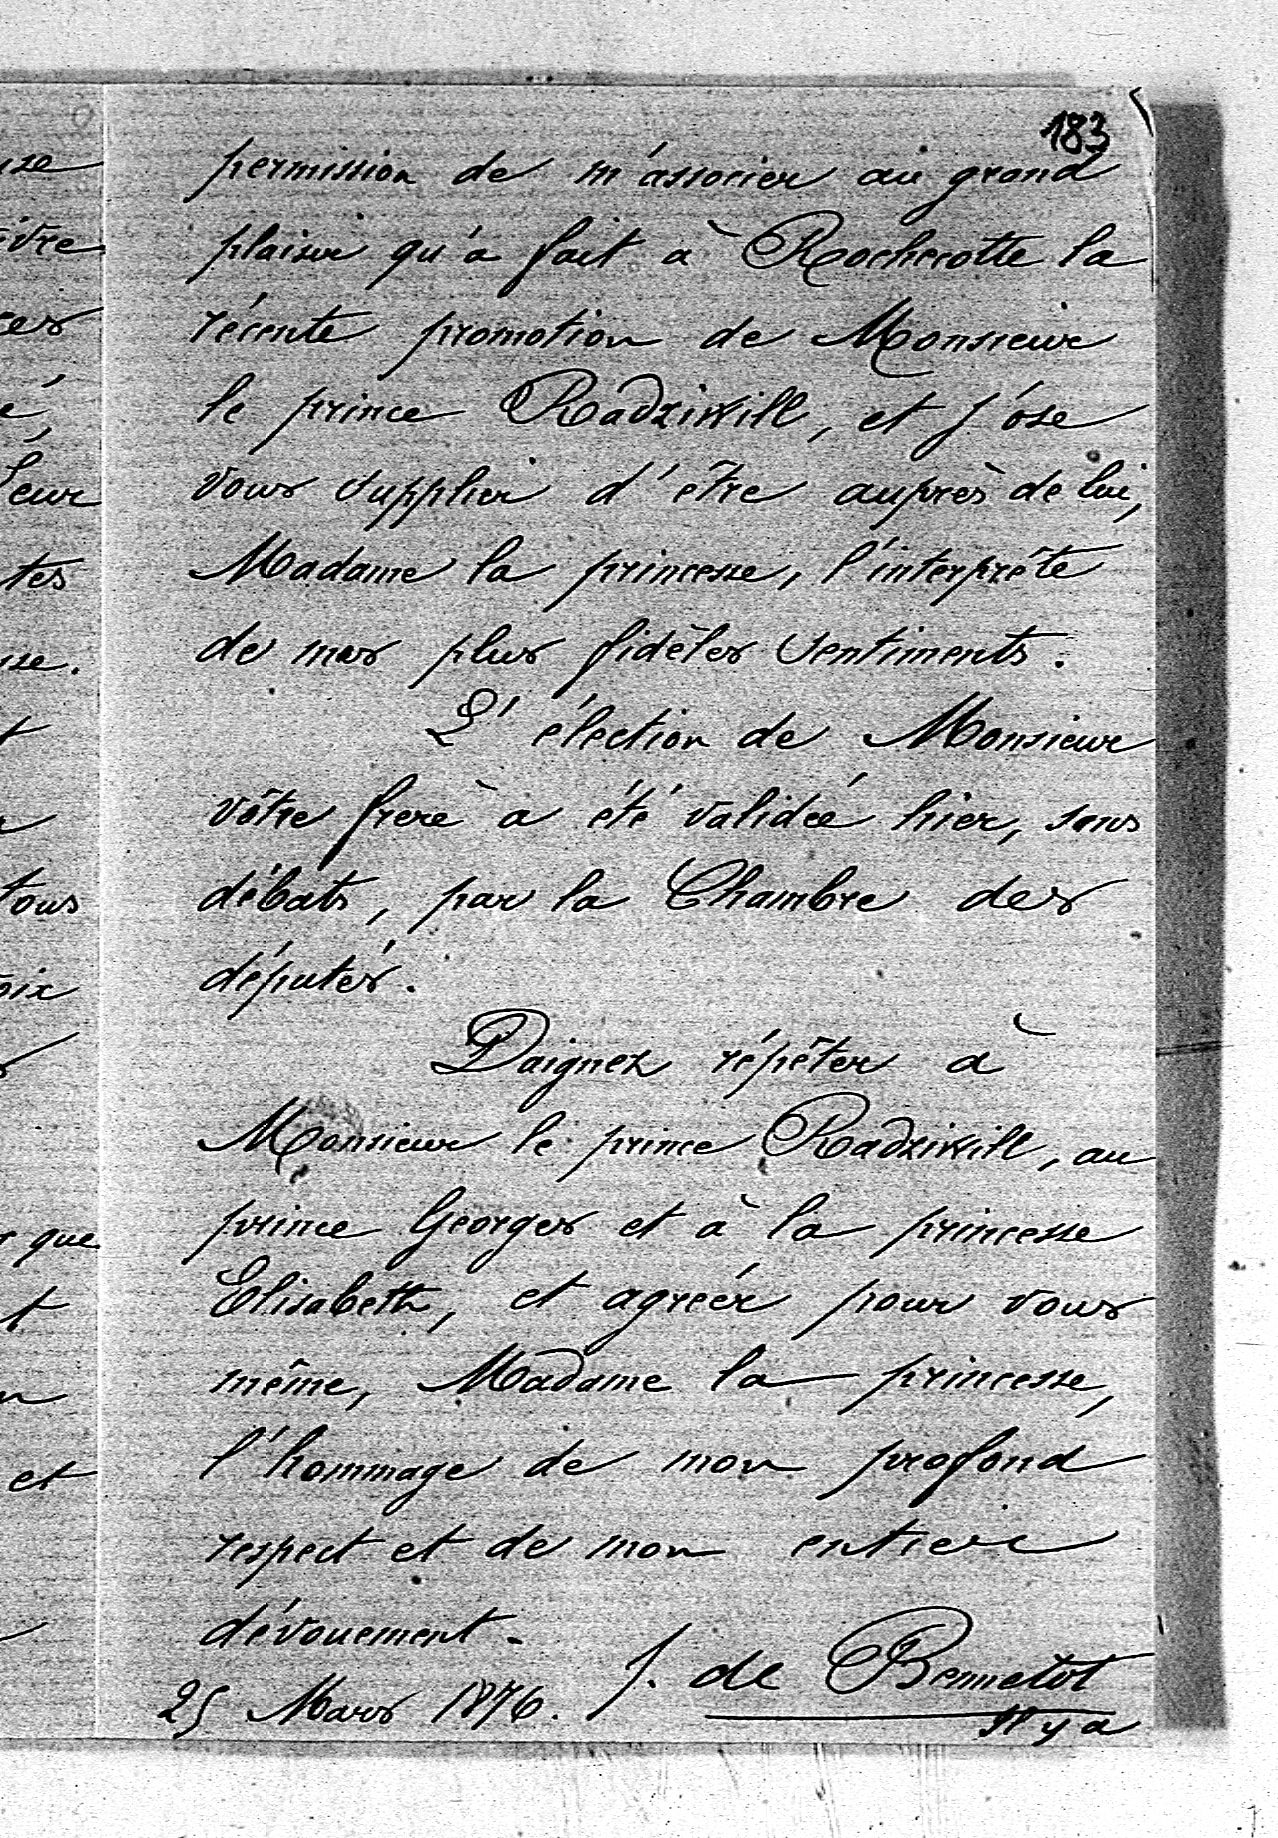 183
permission de m'associer au grand
plaisir qu'a fait à Rochecotte la
récente promotion de Monsieur
le prince Radziwill, et j'ose
vous supplier d'être auprès de lui,
Madame la princesse, l'interprête
de mes plus fidèles sentiments.
L'élection de Monsieur
vôtre frère a été validée hier, sans
débats, par la Chambre des
députés.
Daignez répéter à
Monsieur le prince Radziwill, au
prince Georges et à la princesse
Elisabeth, et agréer pour vous
même, Madame la princesse,
l'hommage de mon profond
respect et de mon entier
dévouement.
25 Mars 1876. J. de Bennetot
Il y a
ivre
ces
é,
leur
tes
use.
tous
oix
que
et